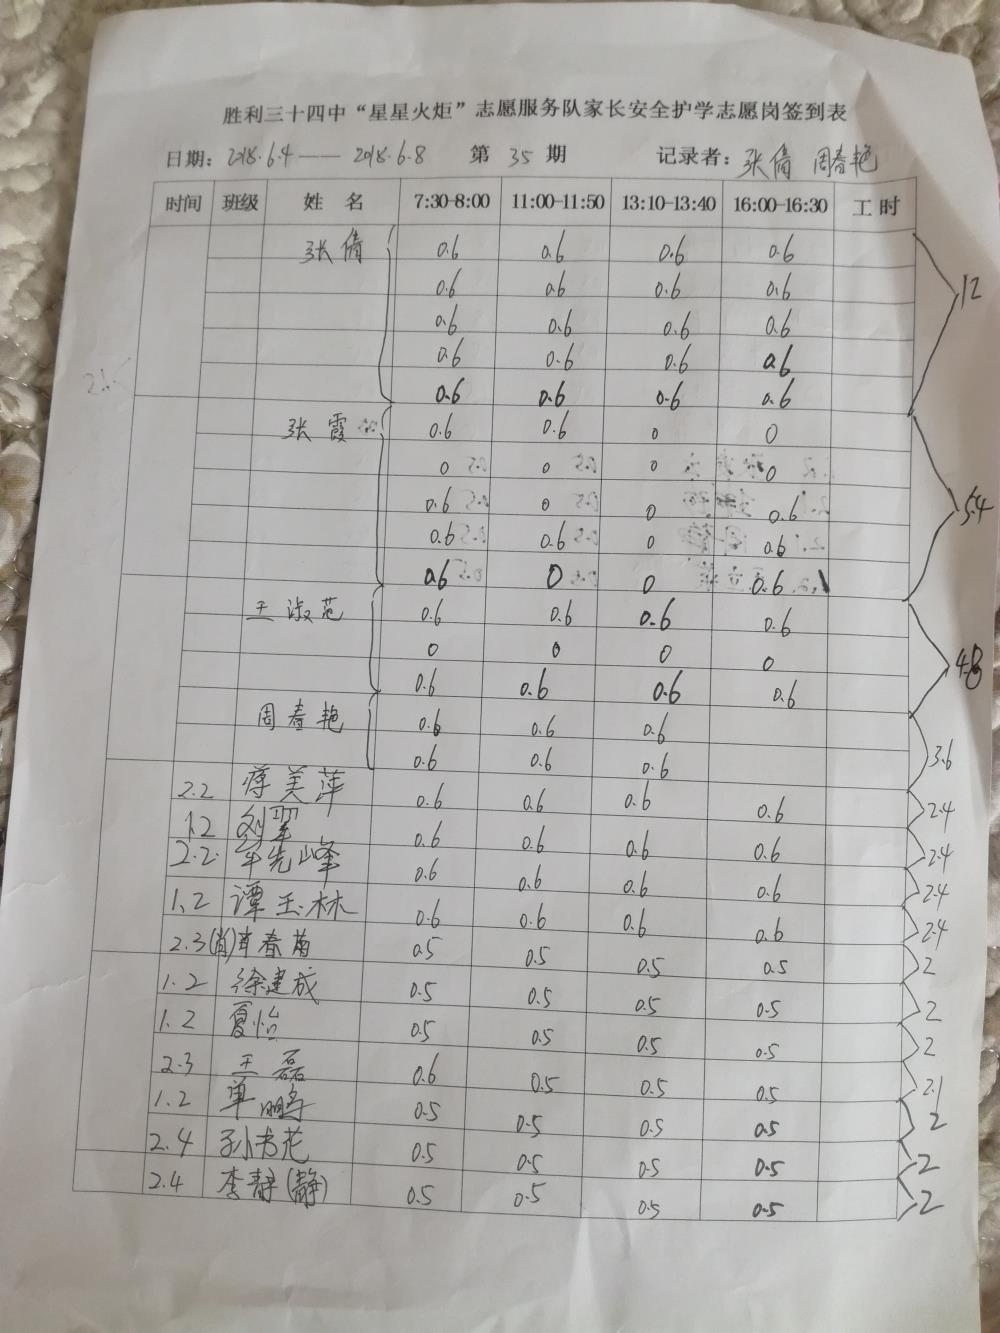 胜利三十四中“星星火炬”志愿服务队家长安全护学志愿岗签到表
日期: 2018.6.4 —— 2018.6.8 第 35 期 记录者: 张倩 周春艳
时间 班级 姓 名 7:30-8:00 11:00-11:50 13:10-13:40 16:00-16:30 工 时
张倩 0.6 0.6 0.6 0.6
0.6 0.6 0.6 0.6 12
0.6 0.6 0.6 0.6
0.6 0.6 0.6 0.6
0.6 0.6 0.6 0.6
张霞 0.6 0.6 0 0
0 0 0 0
0.6 0 0 0.6 5.4
0.6 0.6 0 0.6
0.6 0 0 0.6
王淑范 0.6 0.6 0.6 0.6
0 0 0 0 4.8
0.6 0.6 0.6 0.6
周春艳 0.6 0.6 0.6
0.6 0.6 0.6 3.6
2.2 蒋美萍 0.6 0.6 0.6 0.6 2.4
1.2 刘翠 0.6 0.6 0.6 0.6 2.4
2.2. 先峰 0.6 0.6 0.6 0.6 2.4
1.2 谭玉林 0.6 0.6 0.6 0.6 2.4
2.3 (肖)肖春苗 0.5 0.5 0.5 0.5 2
1.2 徐建成 0.5 0.5 0.5 0.5 2
1.2 夏怡 0.5 0.5 0.5 0.5 2
2.3 王磊 0.6 0.5 0.5 0.5 2.1
1.2 单鹏 0.5 0.5 0.5 0.5 2
2.4 孙书花 0.5 0.5 0.5 0.5 2
2.4 李静(静) 0.5 0.5 0.5 0.5 2